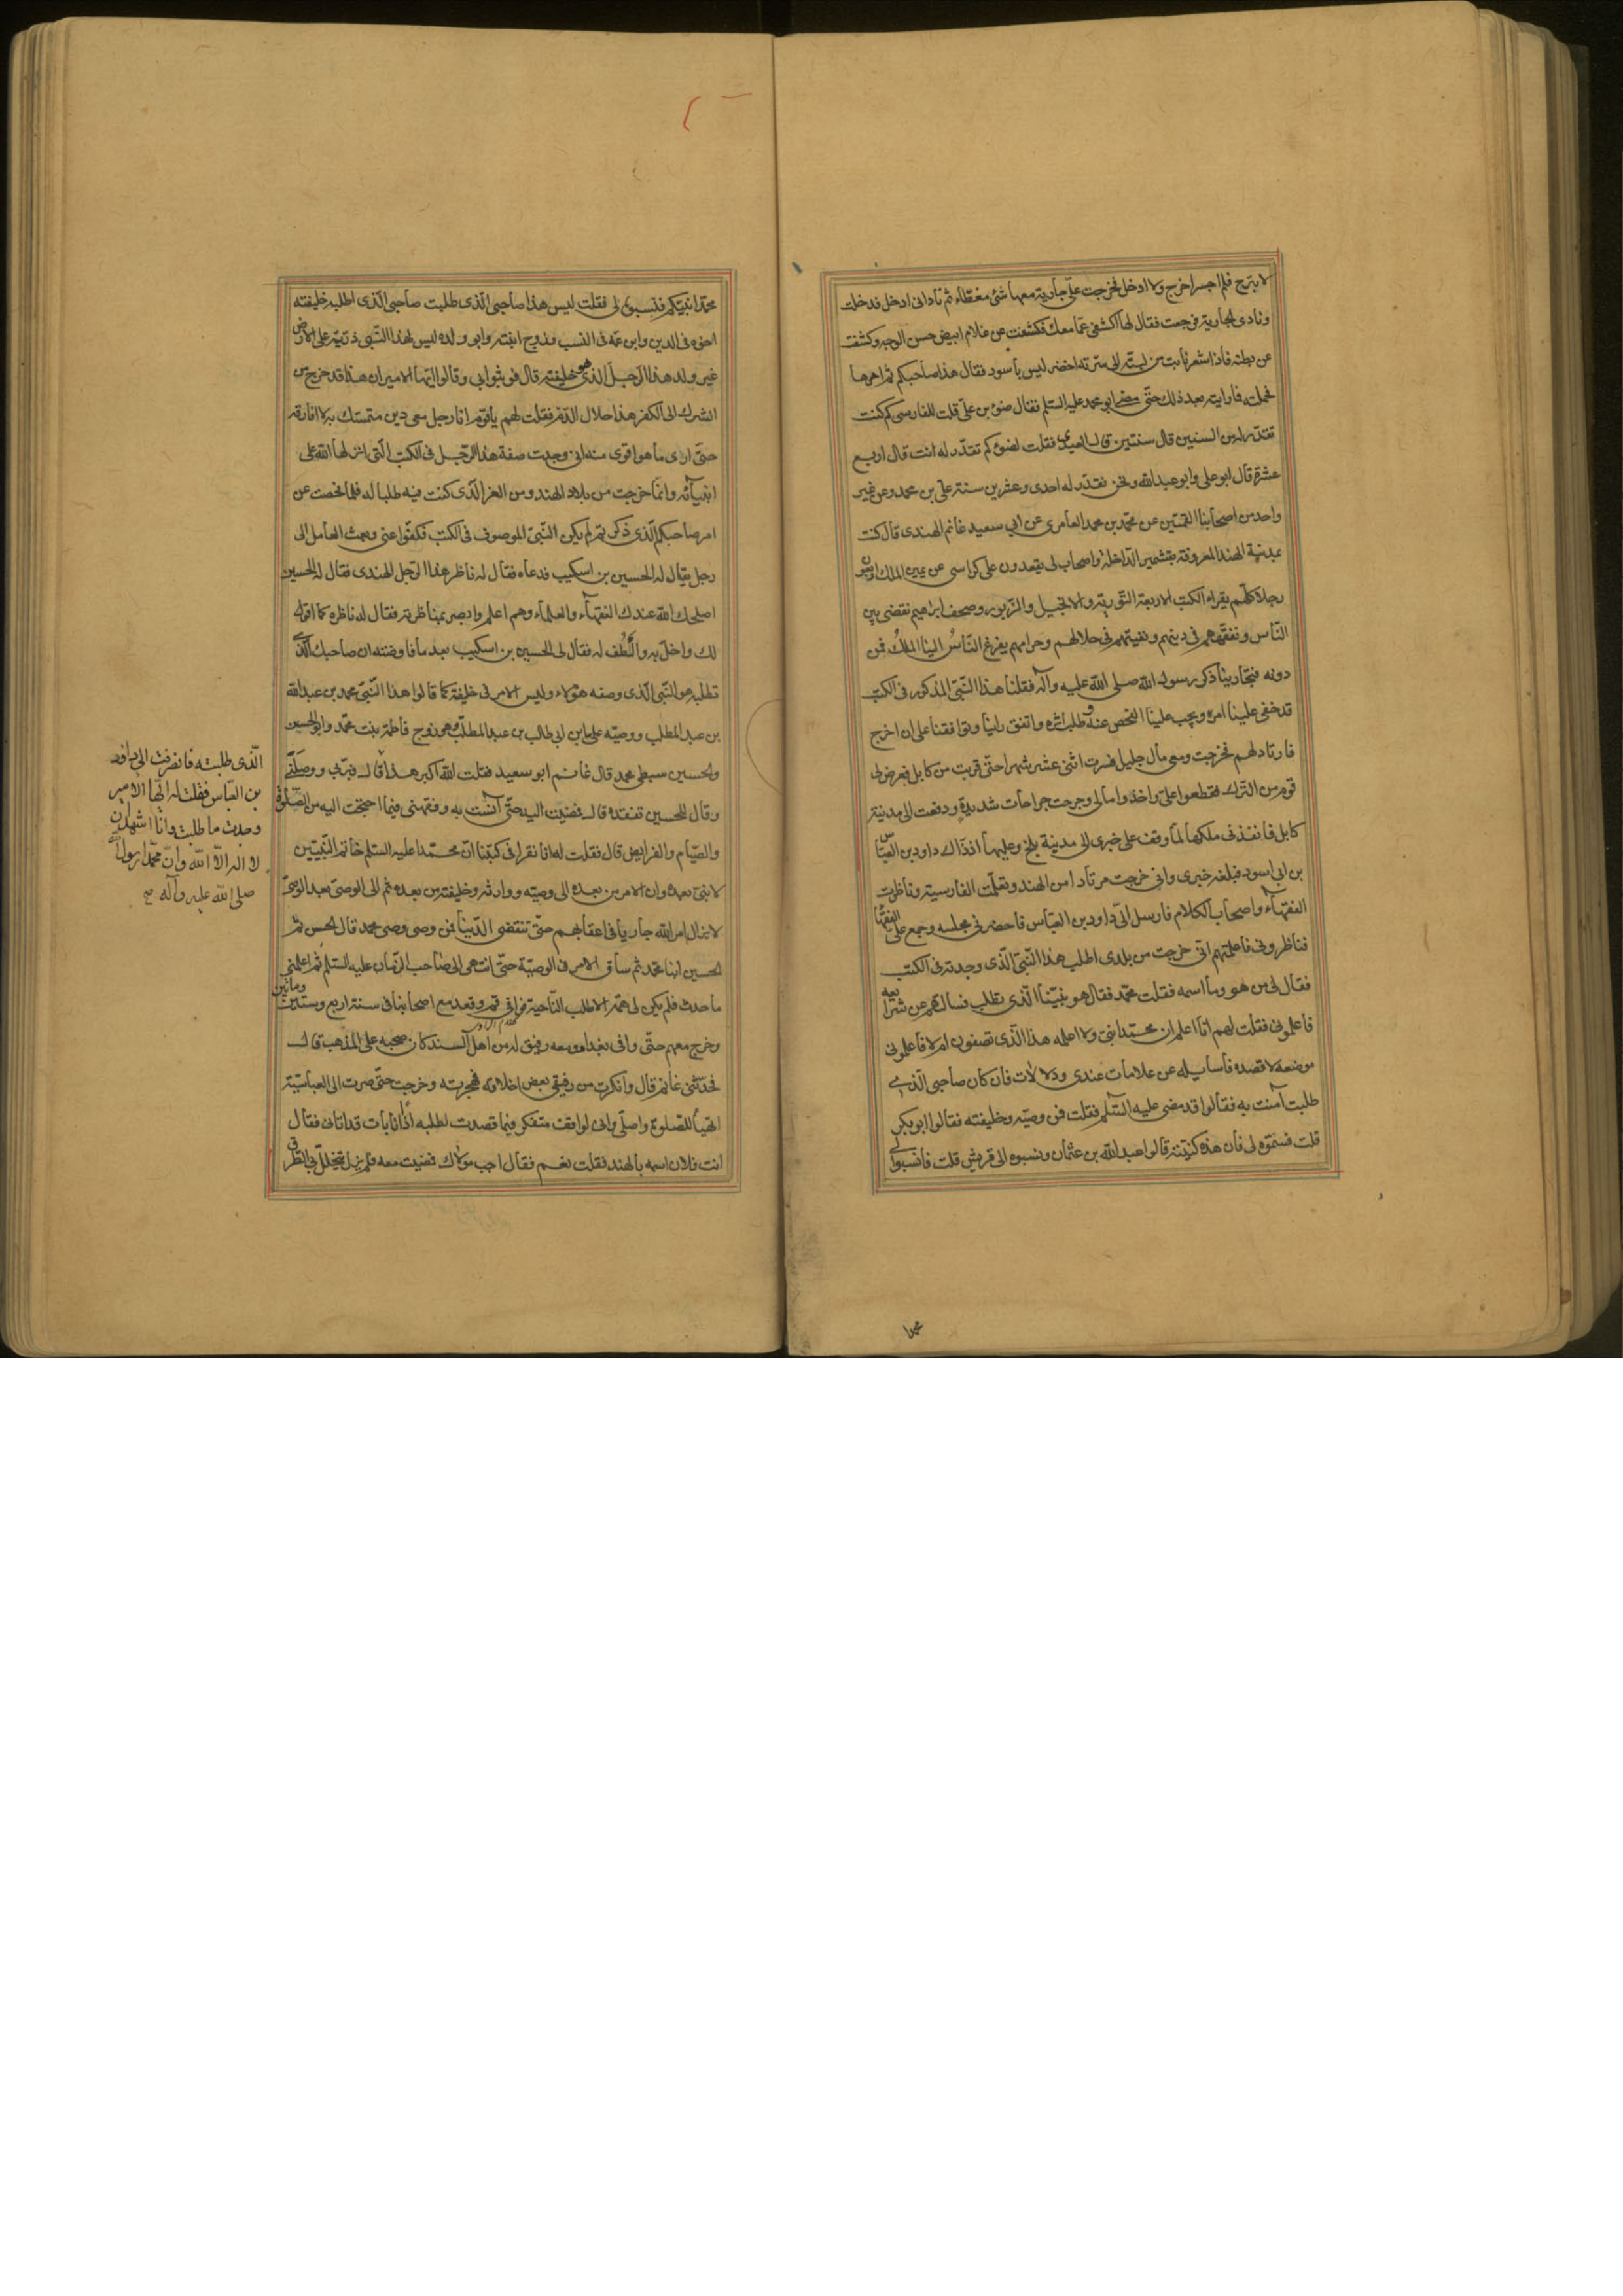 لا تبرح فلم اجسر اخرج ولا ادخل فخرجت علىّ جارية معها شئ مغطّاء ثم نادانى ادخل فدخلت
ونادى الجارية فرجعت فقال لها اكشفى عمّا معك فكشفت عن غلام ابيض حسن الوجه وكشفت
عن بطنه فاذا شعر نابت من لبته الى سرّته اخضر ليس باسود فقال هذا صاحبكم ثم امرها
فحملته فما رايته بعد ذلك حتّى مضى ابو محمد عليه السّلم فقال ضوء بن علىّ قلت للفارسى كم كنت
تقدّر له من السنين قال سنتين قال العبدى فقلت لضوء كم تقدّر له انت قال اربع
عشرة قال ابو على وابو عبد الله ونحن نقدّر له احدى وعشرين سنة علىّ بن محمد وعن غير
واحد من اصحابنا القمّيّين عن محمّد بن محمد العامرى عن ابى سعيد غانم الهندى قال كنت
بمدينة الهند المعروفة بقشمير الدّاخلة واصحاب لى يقعدون على كراسى عن يمين الملك اربعون
رجلا كلّهم يقراء الكتب الاربعة التّورية والانجيل والزّبور وصحف ابراهيم نقضى بين
النّاس ونفقّههم فى دينهم ونفيتهم فى حلالهم وحرامهم يفزع النّاسُ الينا الملكُ فمن
دونه فتجارينا ذكر رسول الله صلى الله عليه وآله فقلنا هذا النّبىّ المذكور فى الكتب
قد خفى علينا امره ويجب علينا الفحص عنه وطلب اثره واتفق راينا وتوافقنا على ان اخرج
فارتاد لهم فخرجت ومعى مال جليل فسرت اثنى عشر شهرا حتّى قربت من كابل فعرض لى
قوم من التّرك فقطعوا علىّ واخذوا مالى وجرحت جراحات شديدة ودفعت الى مدينة
كابل فانفذنى ملكها لمّا وقف على خبرى الى مدينة بلخ وعليها اذ ذاك داود بن العبّاس
بن ابى اسود فبلغه خبرى وانى خرجت مرتادا من الهند وتعلّمت الفارسية وناظرت
الفقهآء واصحاب الكلام فارسل الىّ داود بن العبّاس فاحضرنى مجلسه وجمع علىّ الفقهآ
فناظرونى فاعلمتهم انّى خرجت من بلدى اطلب هذا النّبىّ الّذى وجدته فى الكتب
فقال لى من هو وما اسمه فقلت محمّد فقال هو نبيّنا الّذى تطلب فسالتهم عن شرايعه
فاعلمونى فقلت لهم انا اعلم ان محمّدا نبىّ ولا اعلمه هذا الّذى تصفون ام لا فاعلمونى
موضعه لاقصده فاسايله عن علامات عندى ودلالات فان كان صاحبى الّذى
طلبت آمنت به فقالوا قد مضى عليه السّلم فقلت فمن وصيّه وخليفته فقالوا ابو بكر
قلت فسمّوه لى فان هذه كنيته قالوا عبد الله بن عثمان ونسبوه الى قريش قلت فانسبوا لى
محمدا
محمّدا نبيّكم فنسبوه لى فقلت ليس هذا صاحبى الّذى طلبت صاحبى الّذى اطلبه خليفته
اخوه فى الدين وابن عمّه فى النسب وزوج ابنته وابو ولده ليس لهذا النّبى ذرّيّة على الارض
غير ولد هذا الرّجل الذى هو خليفته قال فوثبوا بى وقالوا ايّها الامير ان هذا قد خرج من
الشرك الى الكفر هذا حلال الدّم فقلت لهم يا قوم انا رجل معى دين متمسّك به لا افارقه
حتّى ارى ما هو اقوى منه انى وجدت صفة هذا الرّجل فى الكتب الّتى انزلها الله على
انبيآئه وانّما خرجت من بلاد الهند ومن العز الّذى كنت فيه طلبا له فلما فحصت عن
امر صاحبكم الّذى ذكرتم لم يكن النّبىّ الموصوف فى الكتب فكفّوا عنى وبعث العامل الى
رجل يقال له الحسين بن اسكيب فدعاه فقال له ناظر هذا الرّجل الهندى فقال له الحسين
اصلحك الله عندك الفقهآء والعلمآء وهم اعلم وابصر بمناظرته فقال له ناظره كما اقول
لك واخل به والطُف له فقال لى الحسين بن اسكيب بعد ما فاوضته ان صاحبك الّذى
تطلبه هو النّبى الّذى وصفه هؤلاء وليس الامر فى خليفته كما قالوا هذا النّبىّ محمد بن عبد الله
بن عبد المطلب ووصيّه على بن ابى طالب بن عبد المطلّب وهو زوج فاطمة بنت محمّد وابو الحسن
والحسين سبطى محمد قال غانم ابو سعيد فقلت الله اكبر هذا
الّذى طلبته فانصرفت الى داود
بن العبّاس فقلت له ايّها الامير
وجدت ما طلبت وانا اشهد ان
لا اله الّا الله وانّ محمّدا رسول الله
صلى الله عليه وآله صح
قال فبرّنى ووصلنى
وقال للحسين تفقّده قال فمضيت اليه حتّى آنست به وفقّهنى فيما احتجت اليه من الصّلوة
والصّيام والفرايض قال فقلت له انا نقرا فى كتبنا انّ محمّدا عليه السّلم خاتم النّبيّين
لا نبىّ بعده وان الامر من بعده الى وصيّه ووارثه وخليفته من بعده ثم الى الوصىّ بعد الوصىّ
لا يزال امر الله جاريا فى اعقابهم حتّى تنقضى الدّنيا فمن وصى وصى محمد قال الحسن ثم
الحسين ابنا محمّد ثم ساق الامر فى الوصيّة حتّى انتهى الى صاحب الزّمان عليه السّلم ثم اعلمنى
ما حدث فلم يكن لى همّة الا طلب النّاحية فوافى قم وقعد مع اصحابنا فى سنة اربع وستّين ومأتين
وخرج معهم حتّى وافى بغداد ومعه رفيق له من اهل السند كان صحبه على المذهب قال
فحدّثنى غانم قال وانكرت من رفيقى بعض اخلاقه فهجرته وخرجت حتّى صرت الى العباسيّة
اتهيّأ للصّلوة واصلّى وانى لواقف متفكر فيما قصدت لطلبه اذا انا بآت قد اتانى فقال
انت فلان اسمه بالهند فقلت نعم فقال اجب مولاك فمضيت معه فلم يزل يتخلّل بى الطّرق